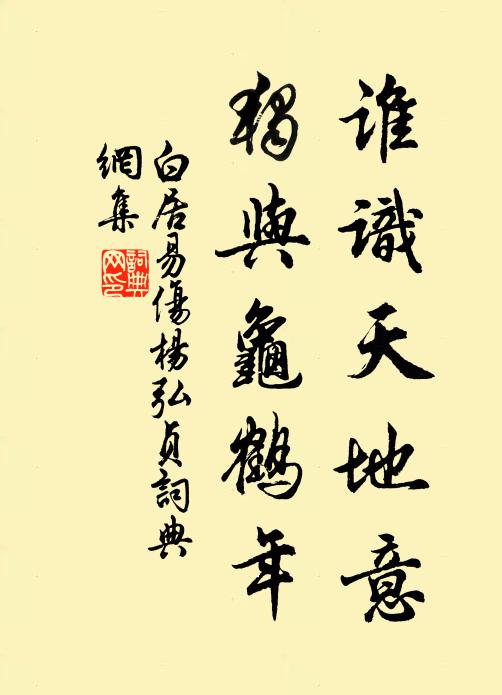 誰識天地意
獨與龜鶴年
白居易傷楊弘貞詞典
網集
詞典網印